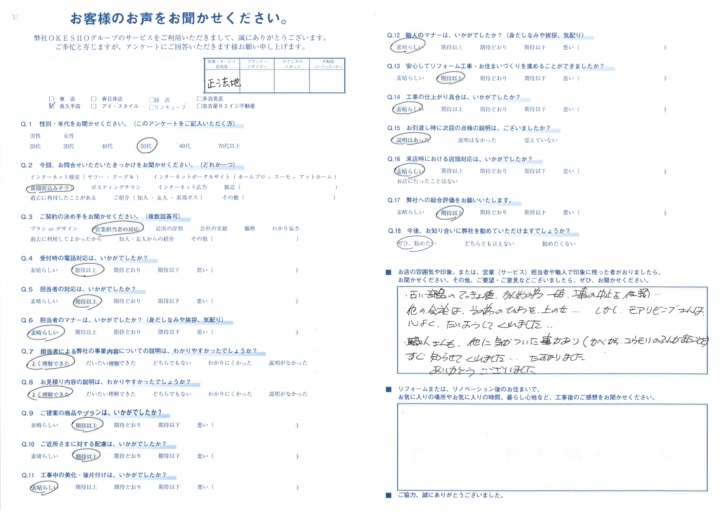 お客様のお声をお聞かせください。
弊社OKESHOグループのサービスをご利用いただきまして、誠にありがとうございます。
ご多忙と存じますが、アンケートにご回答いただきます様お願い申し上げます。
正法地
□ 東 店 □ 春日井店 □ 緑 店 □ 多治見店
長久手店 □ アイ・スタイル □ リノキューブ □ 名古屋ロコイシア不動産
Q.1 性別・年代をお聞かせください。(このアンケートをご記入いただく方)
男性 女性
20代 30代 40代 50代 60代 70代以上
Q.2 今回、お問合せいただいたきっかけをお聞かせください。(どれか一つ)
インターネット検索(ヤフー・グーグル) インターネットポータルサイト(ホームプロ・スーモ・アットホーム)
新聞折込みチラシ ポスティングチラシ インターネット広告 雑誌( )
過去に利用したことがある ご紹介(知人・友人・東邦ガス) その他( )
Q.3 ご契約の決め手をお聞かせください。(複数回答可)
プラン or デザイン 営業担当者の対応 近所の評判 会社の実績 価格 わかり易さ
過去に利用してよかったから 知人・友人からの紹介 その他( )
Q.4 受付時の電話対応は、いかがでしたか?
素晴らしい 期待以上 期待どおり 期待以下 悪い( )
Q.5 担当者の対応は、いかがでしたか?
素晴らしい 期待以上 期待どおり 期待以下 悪い( )
Q.6 担当者のマナーは、いかがでしたか?(身だしなみや挨拶、気配り)
素晴らしい 期待以上 期待どおり 期待以下 悪い( )
Q.7 担当者による弊社の事業内容についての説明は、わかりやすかったでしょうか?
よく理解できた だいたい理解できた どちらでもない わかりにくかった 説明がなかった
Q.8 お見積り内容の説明は、わかりやすかったでしょうか?
よく理解できた だいたい理解できた どちらでもない わかりにくかった 説明がなかった
Q.9 ご提案の商品やプランは、いかがでしたか?
素晴らしい 期待以上 期待どおり 期待以下 悪い( )
Q.10 ご近所さまに対する配慮は、いかがでしたか?
素晴らしい 期待以上 期待どおり 期待以下 悪い( )
Q.11 工事中の美化・後片付けは、いかがでしたか?
素晴らしい 期待以上 期待どおり 期待以下 悪い( )
Q.12 職人のマナーは、いかがでしたか?(身だしなみや挨拶、気配り)
素晴らしい 期待以上 期待どおり 期待以下 悪い( )
Q.13 安心してリフォーム工事・お住まいづくりを進めることができましたか?
素晴らしい 期待以上 期待どおり 期待以下 悪い( )
Q.14 工事の仕上がり具合は、いかがでしたか?
素晴らしい 期待以上 期待どおり 期待以下 悪い( )
Q.15 お引渡し時に次回の点検の説明は、ございましたか?
説明はあった 説明はなかった 覚えていない
Q.16 来店時における店舗対応は、いかがでしたか?
素晴らしい 期待以上 期待どおり 期待以下 悪い( )
お店に行ったことはない
Q.17 弊社への総合評価をお願いいたします。
素晴らしい 期待以上 期待どおり 期待以下 悪い( )
Q.18 今後、お知り合いに弊社を勧めていただけますでしょうか?
ぜひ、勧めたい どちらとも言えない 勧めたくない
■ お店の雰囲気や印象、または、営業(サービス)担当者や職人で印象に残った者がおりましたら、
お聞かせください。その他、ご要望・ご意見などございましたら、ぜひ、お聞かせください。
すぐ知らせてくれました… たすかりました
ありがとうございました
■ リフォームまたは、リノベーション後のお住まいで、
お気に入りの場所やお気に入りの時間、暮らし心地など、工事後のご感想をお聞かせください。
■ ご協力、誠にありがとうございました。